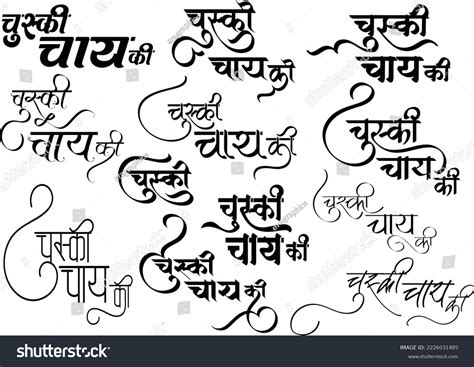 चुस्की
चाय की
चुस्की
चाय की
चुस्की
चाय की
चुस्की
चाय की
चुस्की
चाय की
चुस्की
चाय की
चुस्की
चुस्की
चाय की
चुस्की
चाय की
चुस्की
चाय की
चुस्की
चाय की
चुस्की
चाय की
shutterstock
IMAGE ID: 2226031485
www.shutterstock.com